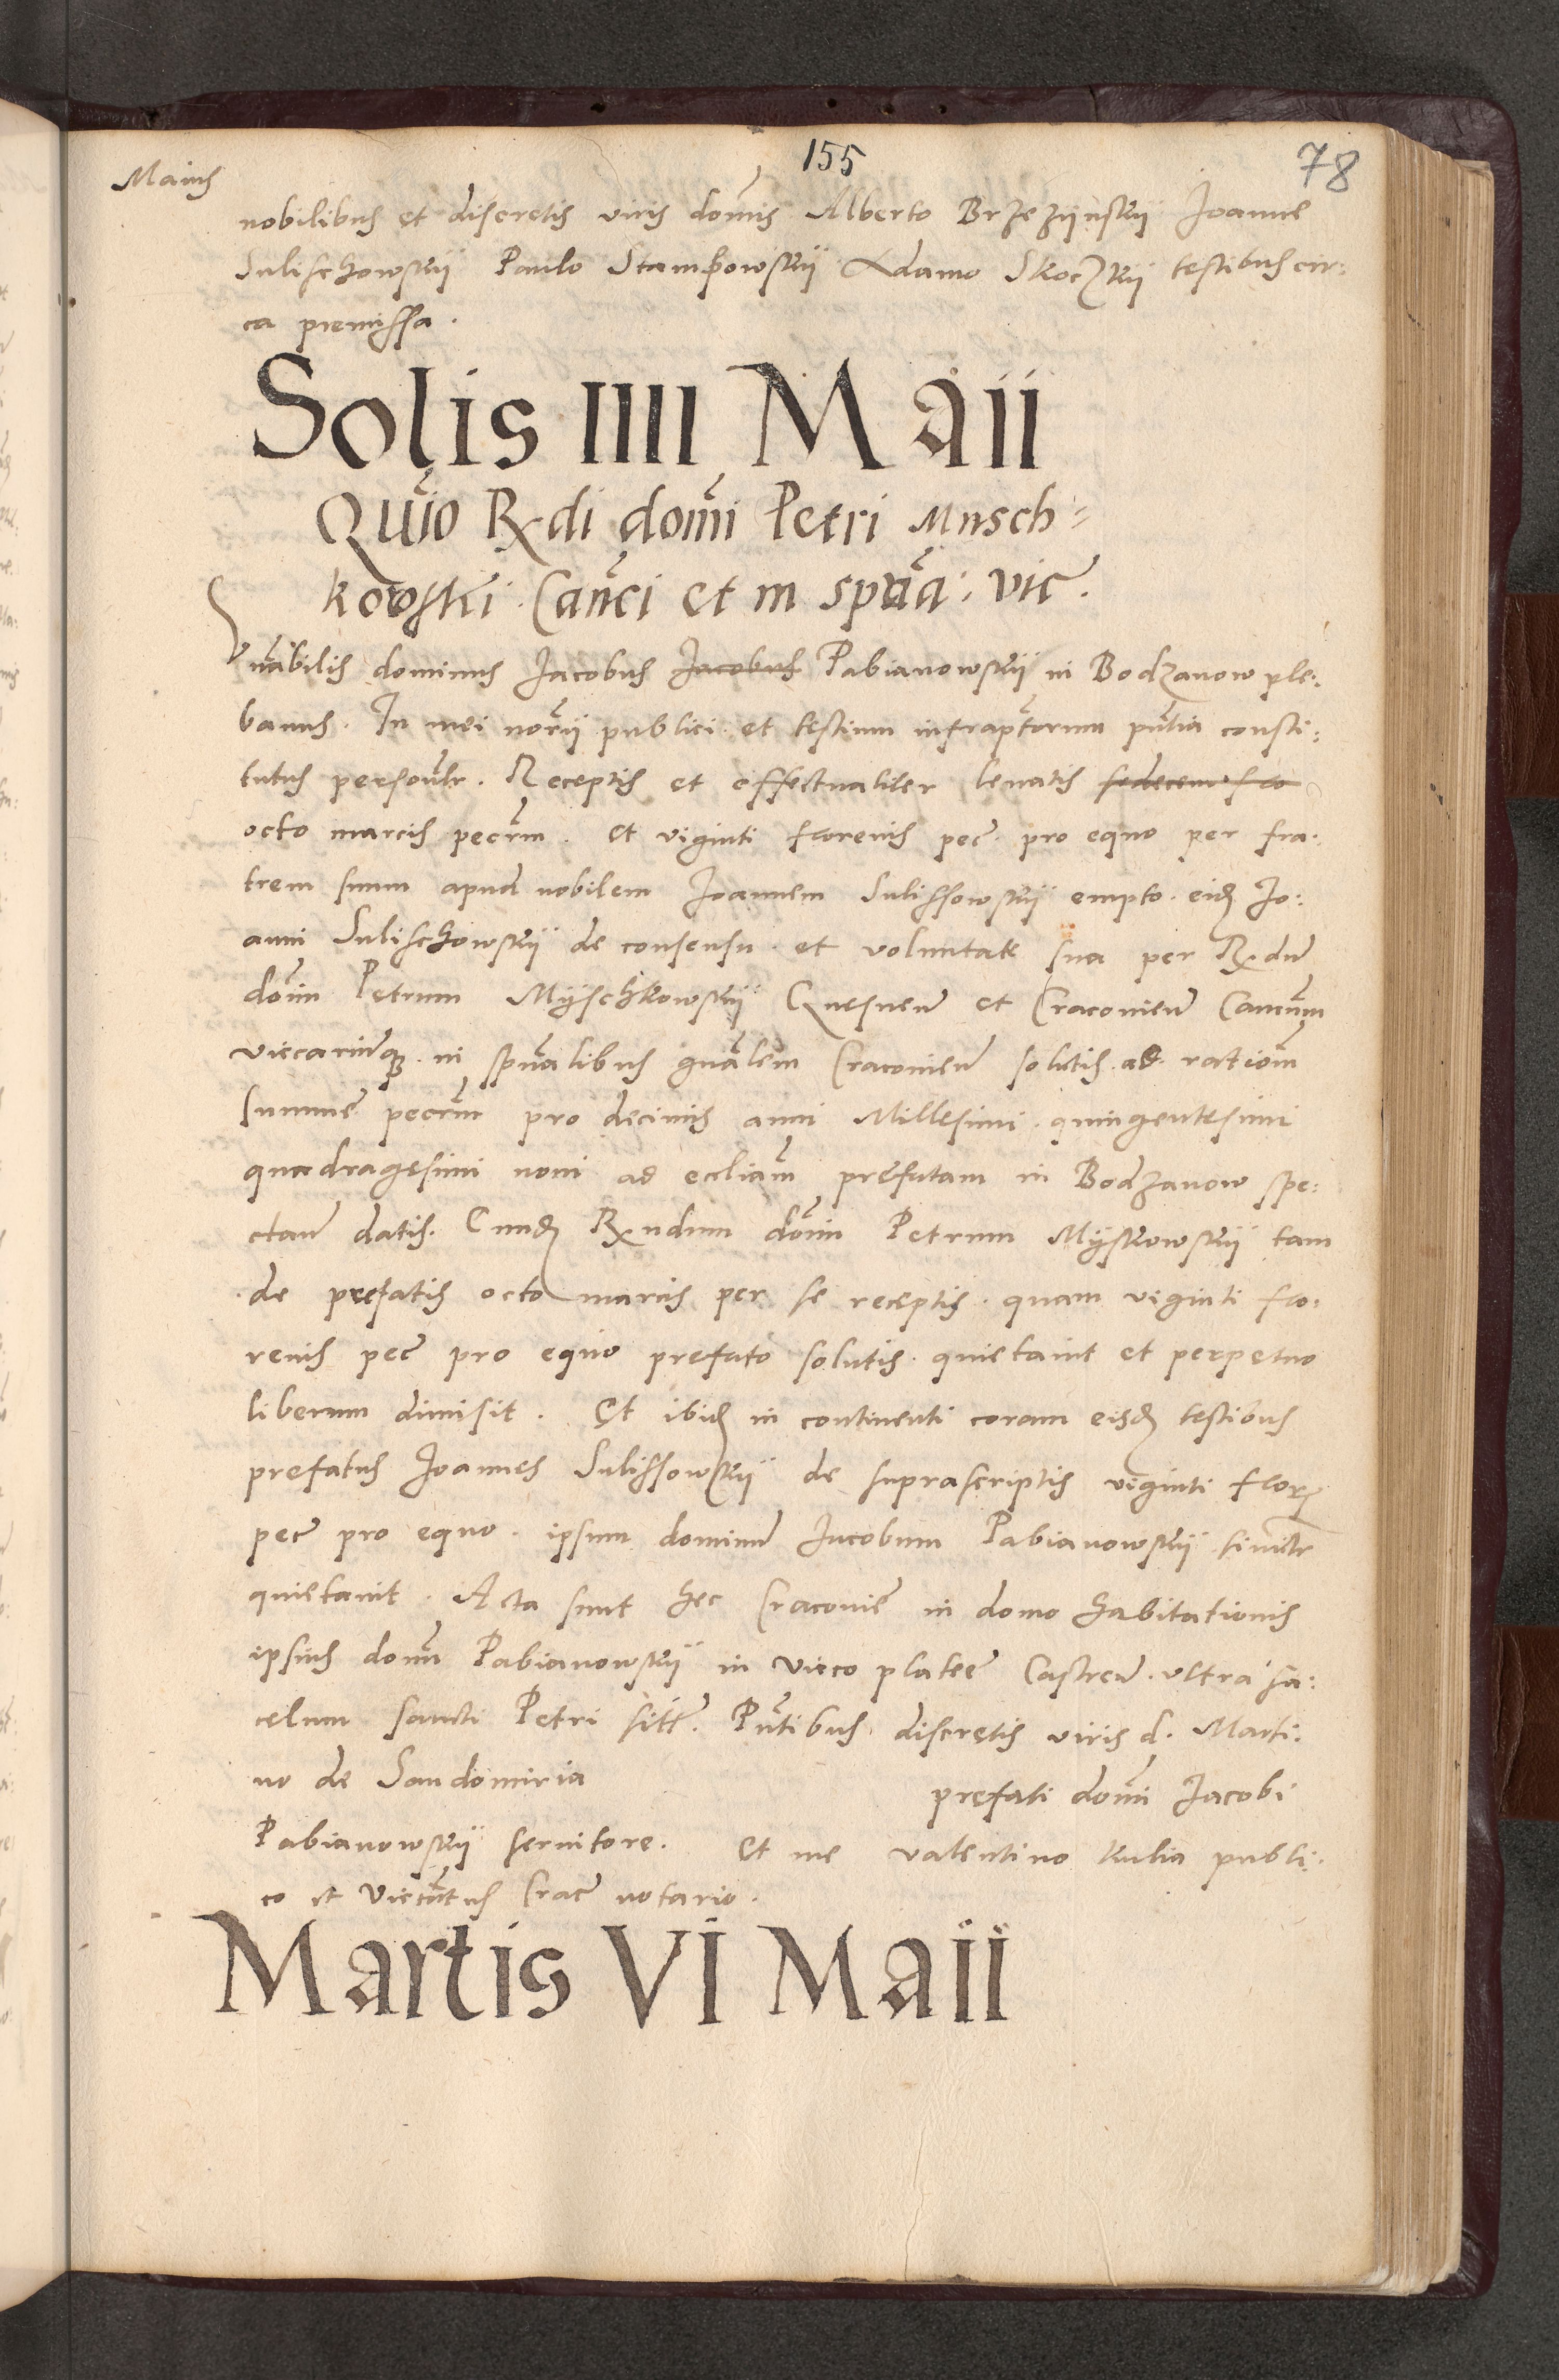 155
78
Maius
nobilibus et discretis viris dom̃is Alberto Brzezijnskij Joanne
Sulischowskij Paulo Stampowskij Adamo Skoczkij testibus cir:
ca premissa.
Solis IIII Maii
Quio Rdi domi Petri Misch=
kowski Canci et in spuãa: vic.
Vnabilis dominus Jacobus Jacobus Pabianowskij in Bodzanow ple:
banus. In mei norij publici et testium infraptorum pñtia consti:
tutus personlr. Receptis et effectualiter levatis sedecem flo
octo marcis pecrm. et viginti florenis pec. pro equo per fra:
trem suum apud nobilem Joannem Sulissowskij empto. eid Jo:
anni Sulischowskij de consensu et voluntate sua per Rdu
dom Petrum Mijschkowskij Gnesnen et Cracovien Canum
viccariuq in spualibus gnalem Cracovien solutis ad rationem
summe pecrm pro decimis anni Millesimi quingentesimi
quadragesimi noni ad eccliam prefatam in Bodzanow spe:
ctan datis. Eund Rndum dom Petrum Mijskowskij tam
de prefatis octo marcis per se receptis quam viginti flo:
renis pec pro equo prefato solutis quietavit et perpetuo
liberum dimisit. Et ibid in continenti coram eisd testibus
prefatus Joannes Sulissowskij de suprascriptis viginti flor
pec pro equo ipsum dominu Jacobum Pabianowskij similr
quietavit. Acta sunt hec Cracovie in domo habitationis
ipsius domi Pabianowskij in vico platee Castren. ultra sa:
celum sancti Petri sitt. Pntibus discretis viris d. Marti:
no de Sandomiria prefati domi Jacobi
Pabianowskij servitore. Et me valentino Kulia publi:
co et vicentus Crac notario.
Martis VI Maii